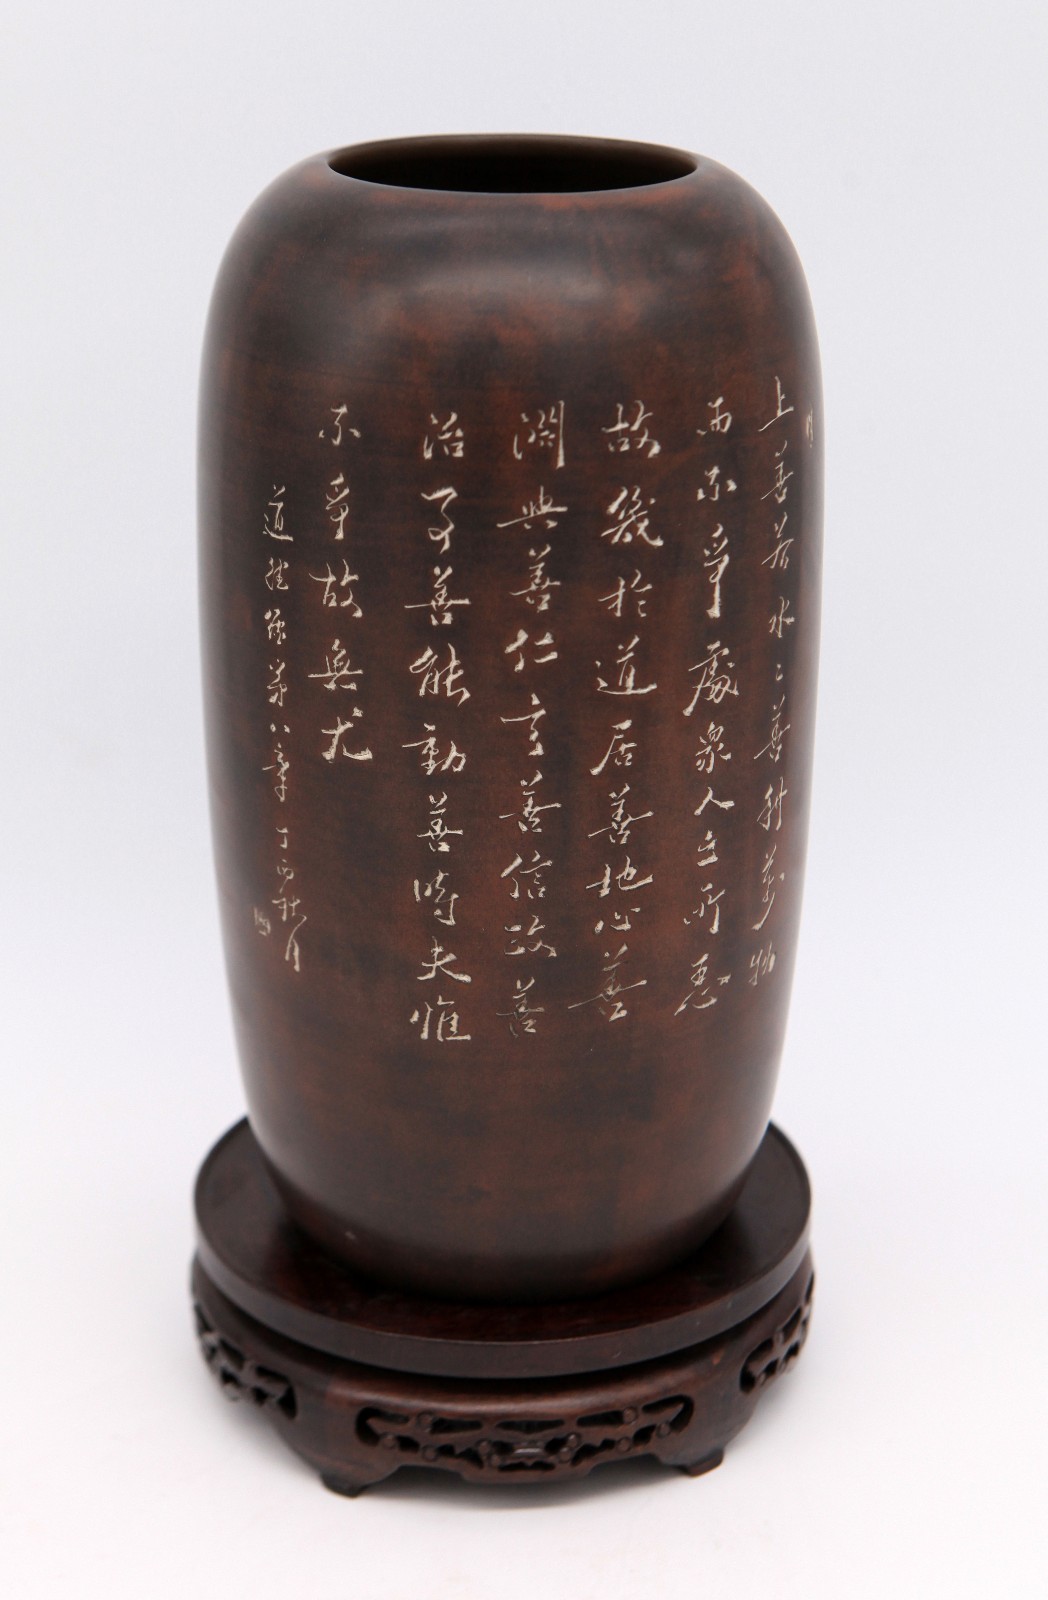 上善若水二善利萬物
而不爭處眾人之所惡
故幾於道居善地心善
淵與善仁言善信政善
治事善能動善時夫惟
不爭故無尤
道德經第八章丁酉秋月